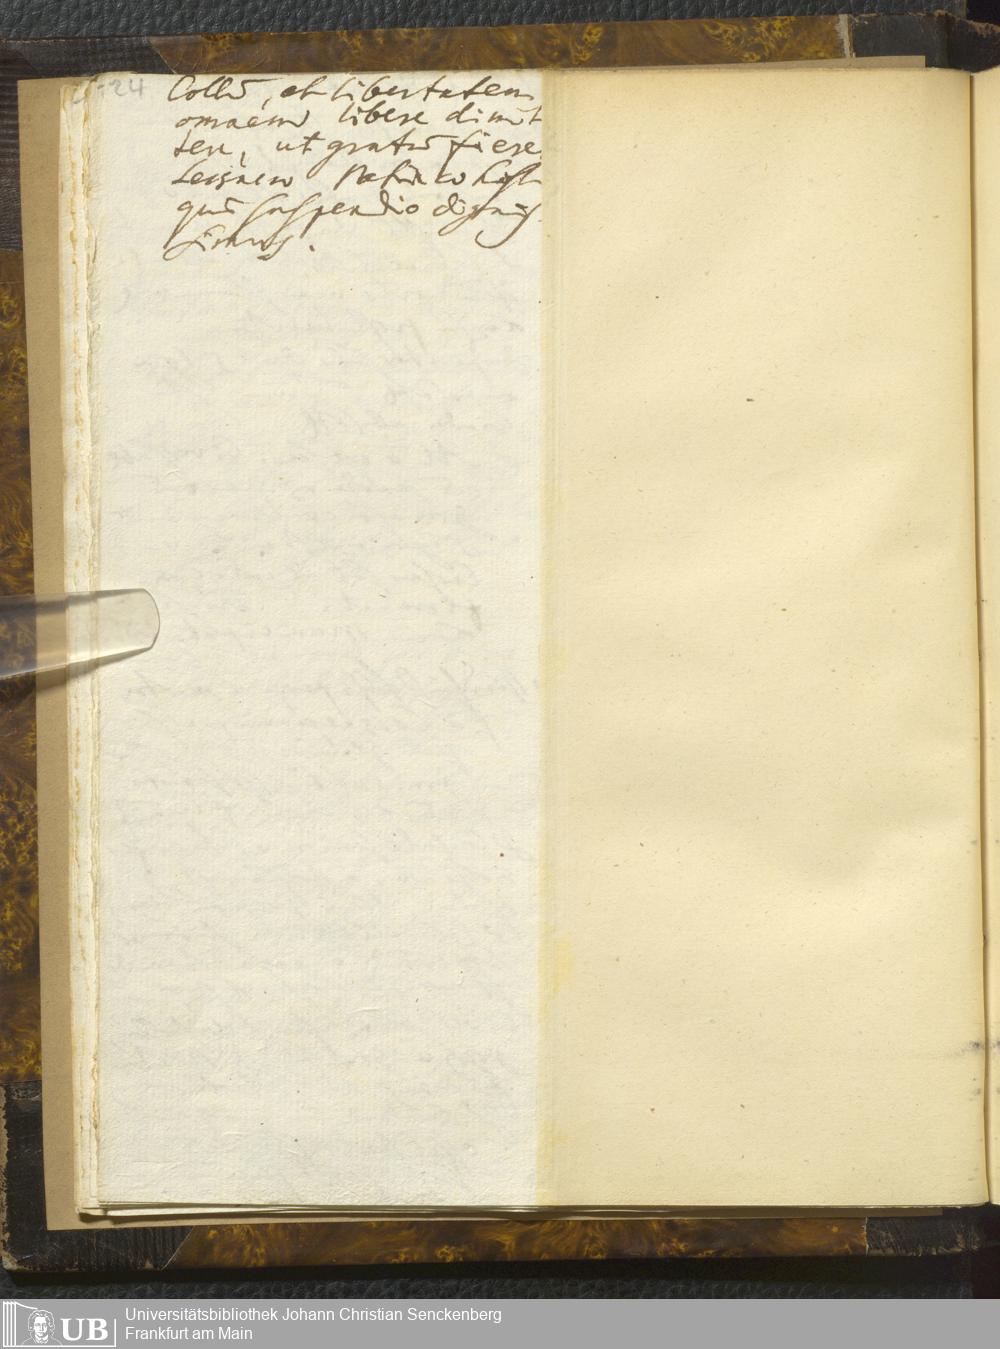 24
Collū, et libertatem
omnem libere dimit
tere, ut gratū fieret
quū suspendio dignis
simus.
Universitätsbibliothek Johann Christian Senckenberg
Frankfurt am Main
UB